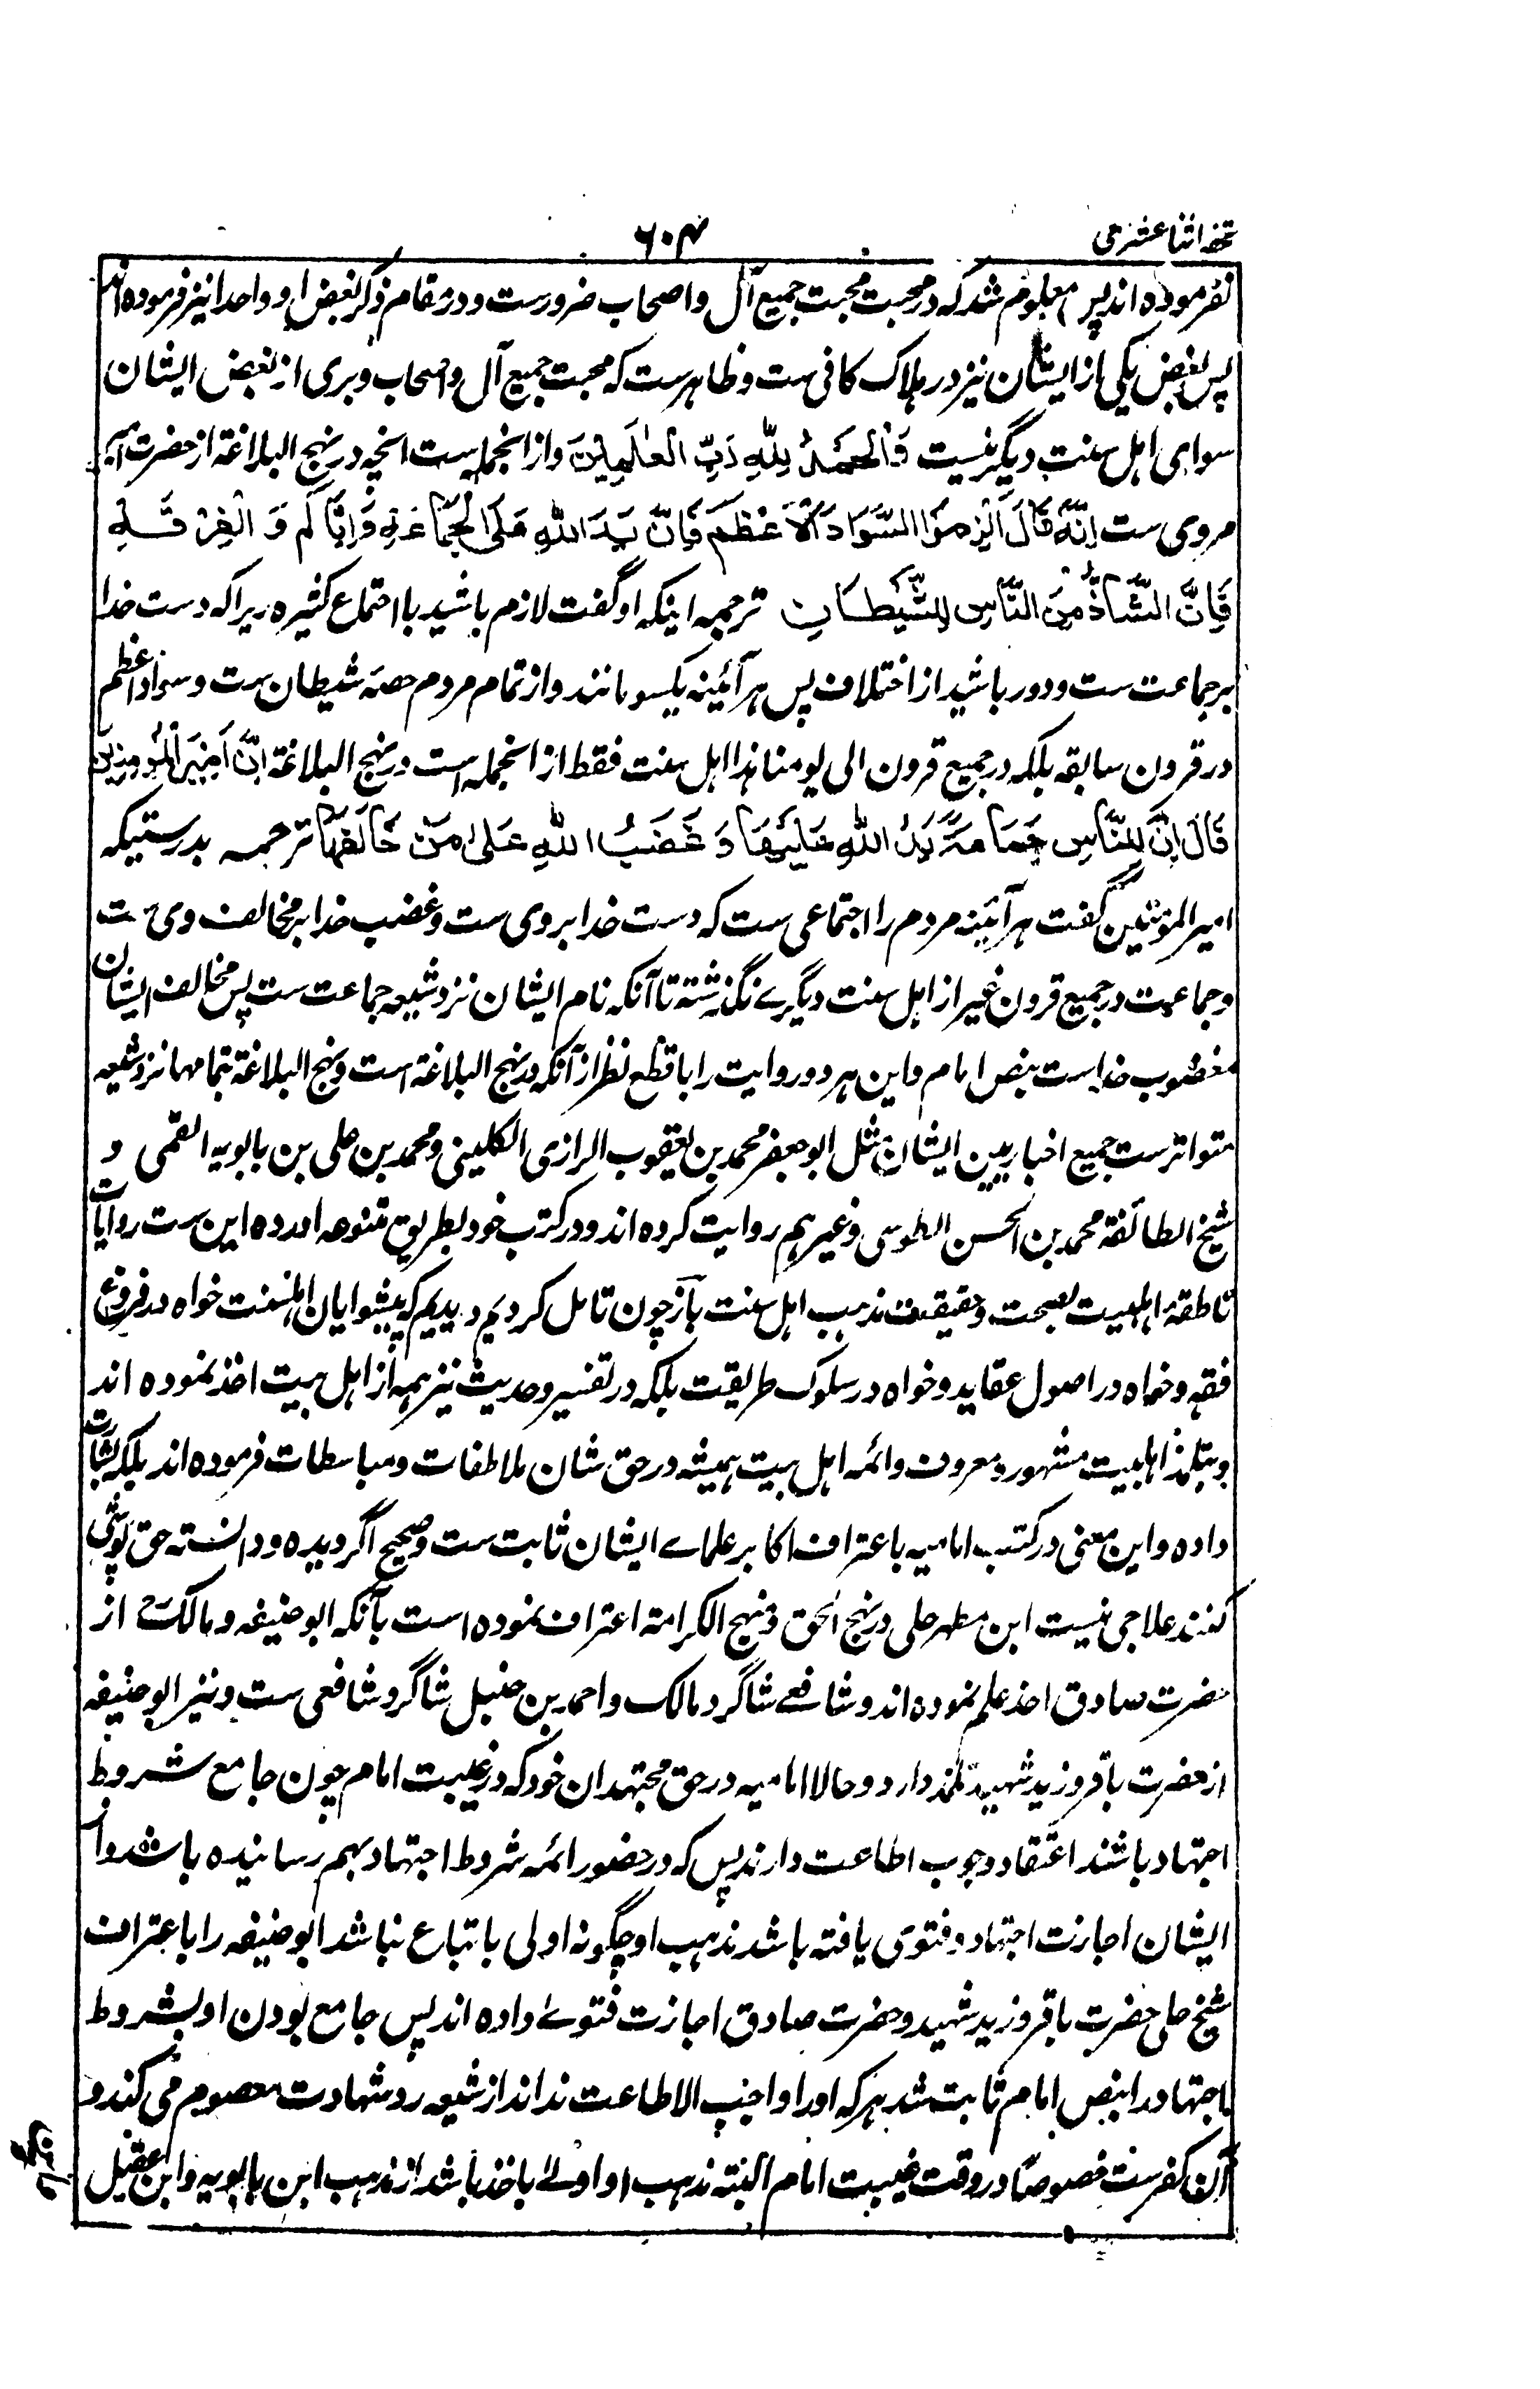 تحفه اثنا عشری
۶۰۴
نفرموده اند پس معلوم شد که در محبت محبت جمیع آل و اصحاب ضرورست و در مقام ذکر بغض او واحدا نیز فرموده اند
پس بغض یکی از ایشان نیز در هلاک کافی ست و ظاهرست که محبت جمیع آل و اصحاب و بری از بغض ایشان
سوای اهل سنت دیگر نیست فَالْحَمْدُ لِلّٰهِ رَبِّ الْعٰلَمِیْنَ و از انجمله ست انچه در نهج البلاغة از حضرت امیر
مروی ست اِنَّهٗ قَالَ اَلْزِمُوا السَّوَادَ الْاَعْظَمَ فَاِنَّ یَدَ اللّٰهِ عَلَی الْجَمَاعَةِ وَ اِیَّاکُمْ وَ الْفِرْقَةَ
فَاِنَّ الشَّاذَّ مِنَ النَّاسِ لِلشَّیْطَانِ ترجمه اینکه او گفت لازم باشید با اجتماع کثیره زیرا که دست خدا
بر جماعت ست و دور باشید از اختلاف پس هر آئینه یکسو مانند و از تمام مردم حصهٔ شیطان ست و سواد اعظم
در قرون سابقه بلکه در جمیع قرون الی یومنا هذا اهل سنت فقط از انجمله است در نهج البلاغة اِنَّ اَمِیْرَ الْمُؤْمِنِیْنَ
قَالَ اِنَّ لِلنَّاسِ جَمَاعَةً یَدُ اللّٰهِ عَلَیْهَا وَ غَضَبُ اللّٰهِ عَلٰی مَنْ خَالَفَهَا ترجمه بدرستیکه
امیر المؤمنین گفت هر آئینه مردم را اجتماعی ست که دست خدا بر وی ست و غضب خدا بر مخالف وی ست
و جماعت در جمیع قرون غیر از اهل سنت دیگرے نگذشته تا آنکه نام ایشان نزد شیعه جماعت ست پس مخالف ایشان
مغضوب خداست بنص امام و این هر دو روایت را با قطع نظر از آنکه در نهج البلاغة است و نهج البلاغة بتمامها نزد شیعه
متواترست جمیع اخباریین ایشان مثل ابو جعفر محمد بن یعقوب الرازی الکلینی و محمد بن علی بن بابویه القمی و
شیخ الطائفة محمد بن الحسن الطوسی و غیرهم روایت کرده اند و در کتب خود بطریق متنوعه اورده این ست روایات
ناطقهٔ اهلبیت بصحت و حقیقت مذهب اهل سنت باز چون تامل کردیم دیدیم که پیشوایان اهلسنت خواه در فروع
فقه و خواه در اصول عقاید و خواه در سلوک طریقت بلکه در تفسیر و حدیث نیز همه از اهل بیت اخذ نموده اند
و بتلمذ اهلبیت مشهور و معروف و ائمه اهل بیت همیشه در حق شان ملاطفات و مباسطات فرموده اند بلکه بشارت
داده و این معنی در کتب امامیه باعتراف اکابر علماے ایشان ثابت ست و صحیح اگر دیده و دانسته حق پوشی
کنند علاجی نیست ابن مطهر حلی در نهج الحق و منهج الکرامة اعتراف نموده است بآنکه ابو حنیفه و مالک از
حضرت صادق اخذ علم نموده اند و شافعے شاگرد مالک و احمد بن حنبل شاگرد شافعی ست و نیز ابو حنیفه
از حضرت باقر و زید شهید تلمذ دارد و حالا امامیه در حق مجتهدان خود که در غیبت امام چون جامع شروط
اجتهاد باشند اعتقاد وجوب اطاعت دارند پس که در حضور ائمه شروط اجتهاد بهم رسانیده باشد و از
ایشان اجازت اجتهاد و فتوی یافته باشد مذهب او چگونه اولی باتباع نباشد ابو حنیفه را باعتراف
شیخ حلی حضرت باقر و زید شهید و حضرت صادق اجازت فتوےٰ داده اند پس جامع بودن او بشروط
اجتهاد را بنص امام ثابت شد هر که او را واجب الاطاعت نداند از شیعه رد شهادت معصوم می کند و
آن کفرست خصوصًا در وقت غیبت امام البته مذهب او اولےٰ باخذ باشد از مذهب ابن بابویه و ابن عقیل